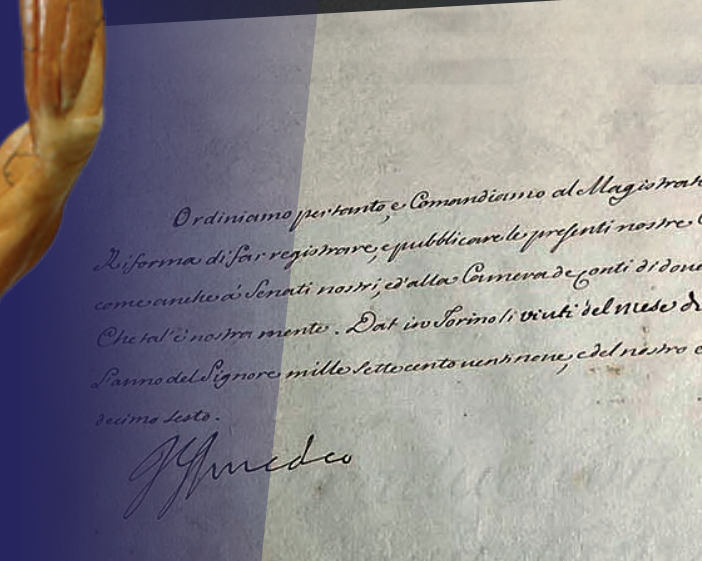 Ordiniamo pertanto, e Comandiamo al Magistrato
Riforma di far registrare, e pubblicare le presenti nostre
come anche a' Senati nostri, ed' alla Camera de Conti di
Che tal' è nostra mente. Dat in Torino li vinti del mese di
L'anno del Signore mille sette cento vent'nove, e del nostro
decimo sesto.
V Amedeo